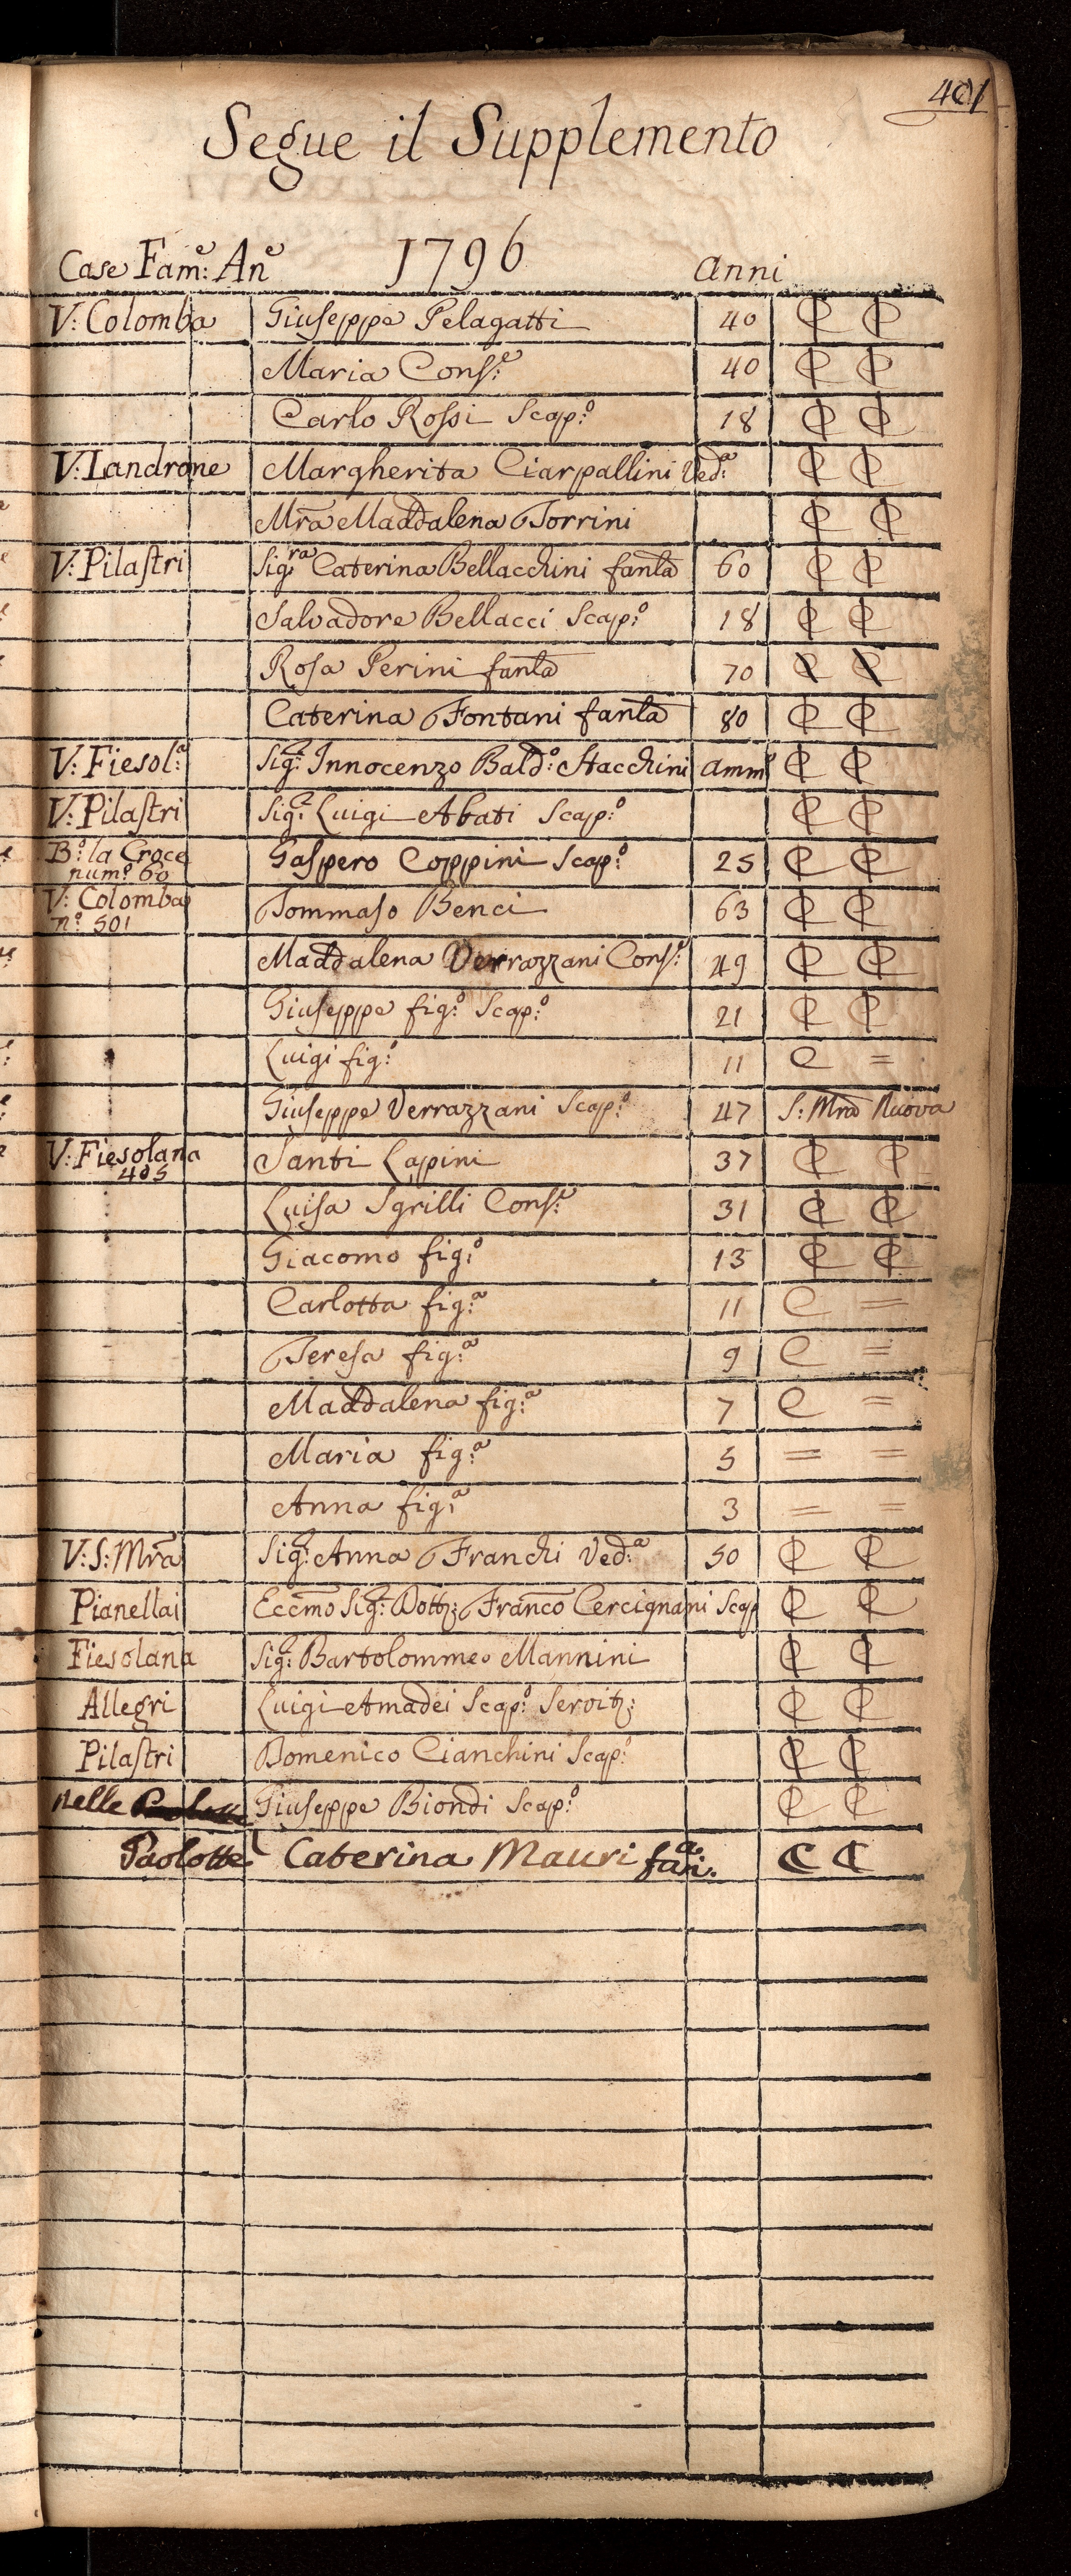 401
Segue il Supplemento
Case Fam:e An:e 1796 Anni
V: Colomba Giuseppe Pelagatti 40 C C
Maria Cons:e 40 C C
Carlo Rossi Scap:o 18 C C
V: Landrone Margherita Ciarpallini Ved:a C C
Mra Maddalena Torrini C C
V: Pilastri Sig:ra Caterina Bellacchini fanla 60 C C
Salvadore Bellacci Scap:o 18 C C
Rosa Perini fanla 70 C C
Caterina Fontani fanla 80 C C
V: Fiesol:a Sig:r Innocenzo Bald:o Stacchini Amm:o C C
V: Pilastri Sig:r Luigi Abati Scap:o C C
B:o la Croce Gaspero Coppini Scap:o 25 C C
num:o 60
V: Colomba Tommaso Benci 63 C C
n:o 501
Maddalena Verrazzani Cons:e 49 C C
Giuseppe fig:o Scap:o 21 C C
Luigi fig:o 11 C =
Giuseppe Verrazzani Scap:o 47 S: Mra Nuova
V: Fiesolana Santi Lapini 37 C C
405
Luisa Sgrilli Cons:e 31 C C
Giacomo fig:o 13 C C
Carlotta fig:a 11 C =
Teresa fig:a 9 C =
Maddalena fig:a 7 C =
Maria fig:a 5 = =
Anna fig:a 3 = =
V: S: Mra Sig:ra Anna Franchi Ved:a 50 C C
Pianellai Eccmo Sig:r Dott:r Franco Cercignani Scap C C
Fiesolana Sig:r Bartolommeo Mannini C C
Allegri Luigi Amadei Scap:o Servitr: C C
Pilastri Domenico Cianchini Scap:o C C
nelle Giuseppe Biondi Scap:o C C
Paolotte Caterina Mauri fan:a C C